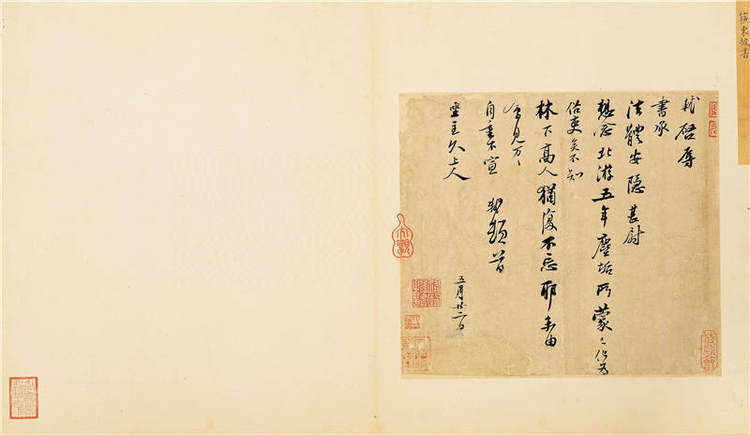 東坡書
軾啓辱
書承
法體安隱甚尉
想念北游五年塵垢所蒙已化為
俗吏矣不知
林下高人猶復不忘耶未由
會見万〻
自重不宣 軾頓首
坐主久上人
五月廿二日